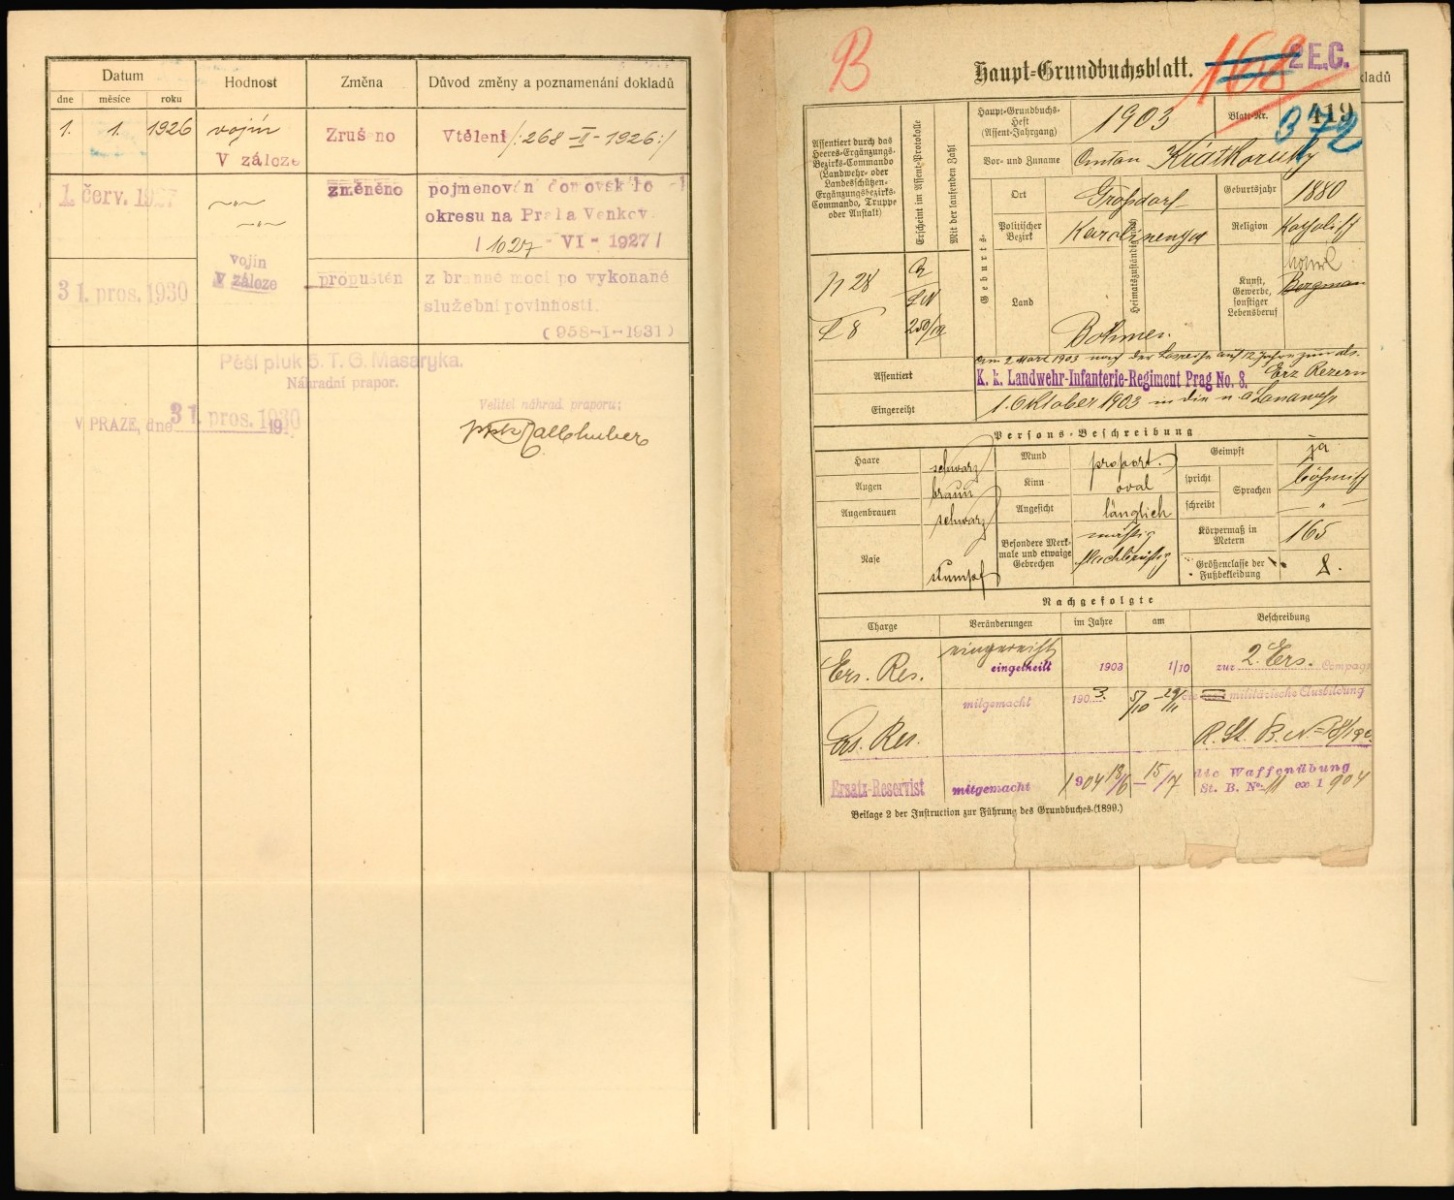 Datum
dne měsíce roku
Hodnost
Změna
Důvod změny a poznamenání dokladů
1. 1. 1926 vojín Zrušeno Vtělení /:268-II-1926:/
V záloze
1. červ. 1927 změněno pojmenování domovského
okresu na Praha Venkov.
/1027 - VI - 1927/
31. pros. 1930 vojín
V záloze
propuštěn z branné moci po vykonané
služební povinnosti.
(958-I-1931)
Pěší pluk 5. T. G. Masaryka.
Náhradní prapor.
V PRAZE, dne 31. pros. 1930
19
Velitel náhrad. praporu:
B
Haupt=Grundbuchsblatt.
168
2 E.C.
kladů
Assentiert durch das
Heeres-Ergänzungs-
Bezirks-Commando
(Landwehr- oder
Landesschützen-
Ergänzungsbezirks-
Commando, Truppe
oder Anstalt)
Erscheint im Assent-Protokolle
Mit der laufenden Zahl
Haupt-Grundbuchs-
Heft
(Assent-Jahrgang)
1903
Blatt-Nr.
419
372
Vor- und Zuname
Anton Krátkoruký
Geburts-
Ort
Großdorf
Geburtsjahr
1880
Politischer
Bezirk
Karolinenthal
Heimatszuständigkeits
Religion
Katholisch
Land
Böhmen.
Kunst,
Gewerbe,
sonstiger
Lebensberuf
Bergmann
N 28
L 8
Assentiert
K. k. Landwehr-Infanterie-Regiment Prag No. 8.
Eingereiht
1. Oktober 1903 in die
Persons-Beschreibung
Haare schwarz
Mund proport.
Geimpft ja
Augen braun
Kinn oval
spricht
Sprachen
böhmisch
Augenbrauen schwarz
Angesicht länglich
schreibt
"
Nase stumpf
Besondere Merk-
male und etwaige
Gebrechen
Körpermaß in
Metern
165
Größenclasse der
Fußbekleidung
8.
Nachgefolgte
Charge Veränderungen im Jahre am Beschreibung
Ers. Res. eingereiht
eingetheilt 1903 1/10 zur 2. Ers. Compag
mitgemacht 1903. 5/10 29/11 die militärische Ausbildung
Ers. Res.
Ersatz-Reservist mitgemacht 1904 18/6 - 15/7 die Waffenübung
St. B. No. 11 ex 1904
Beilage 2 der Instruction zur Führung des Grundbuches (1899.)